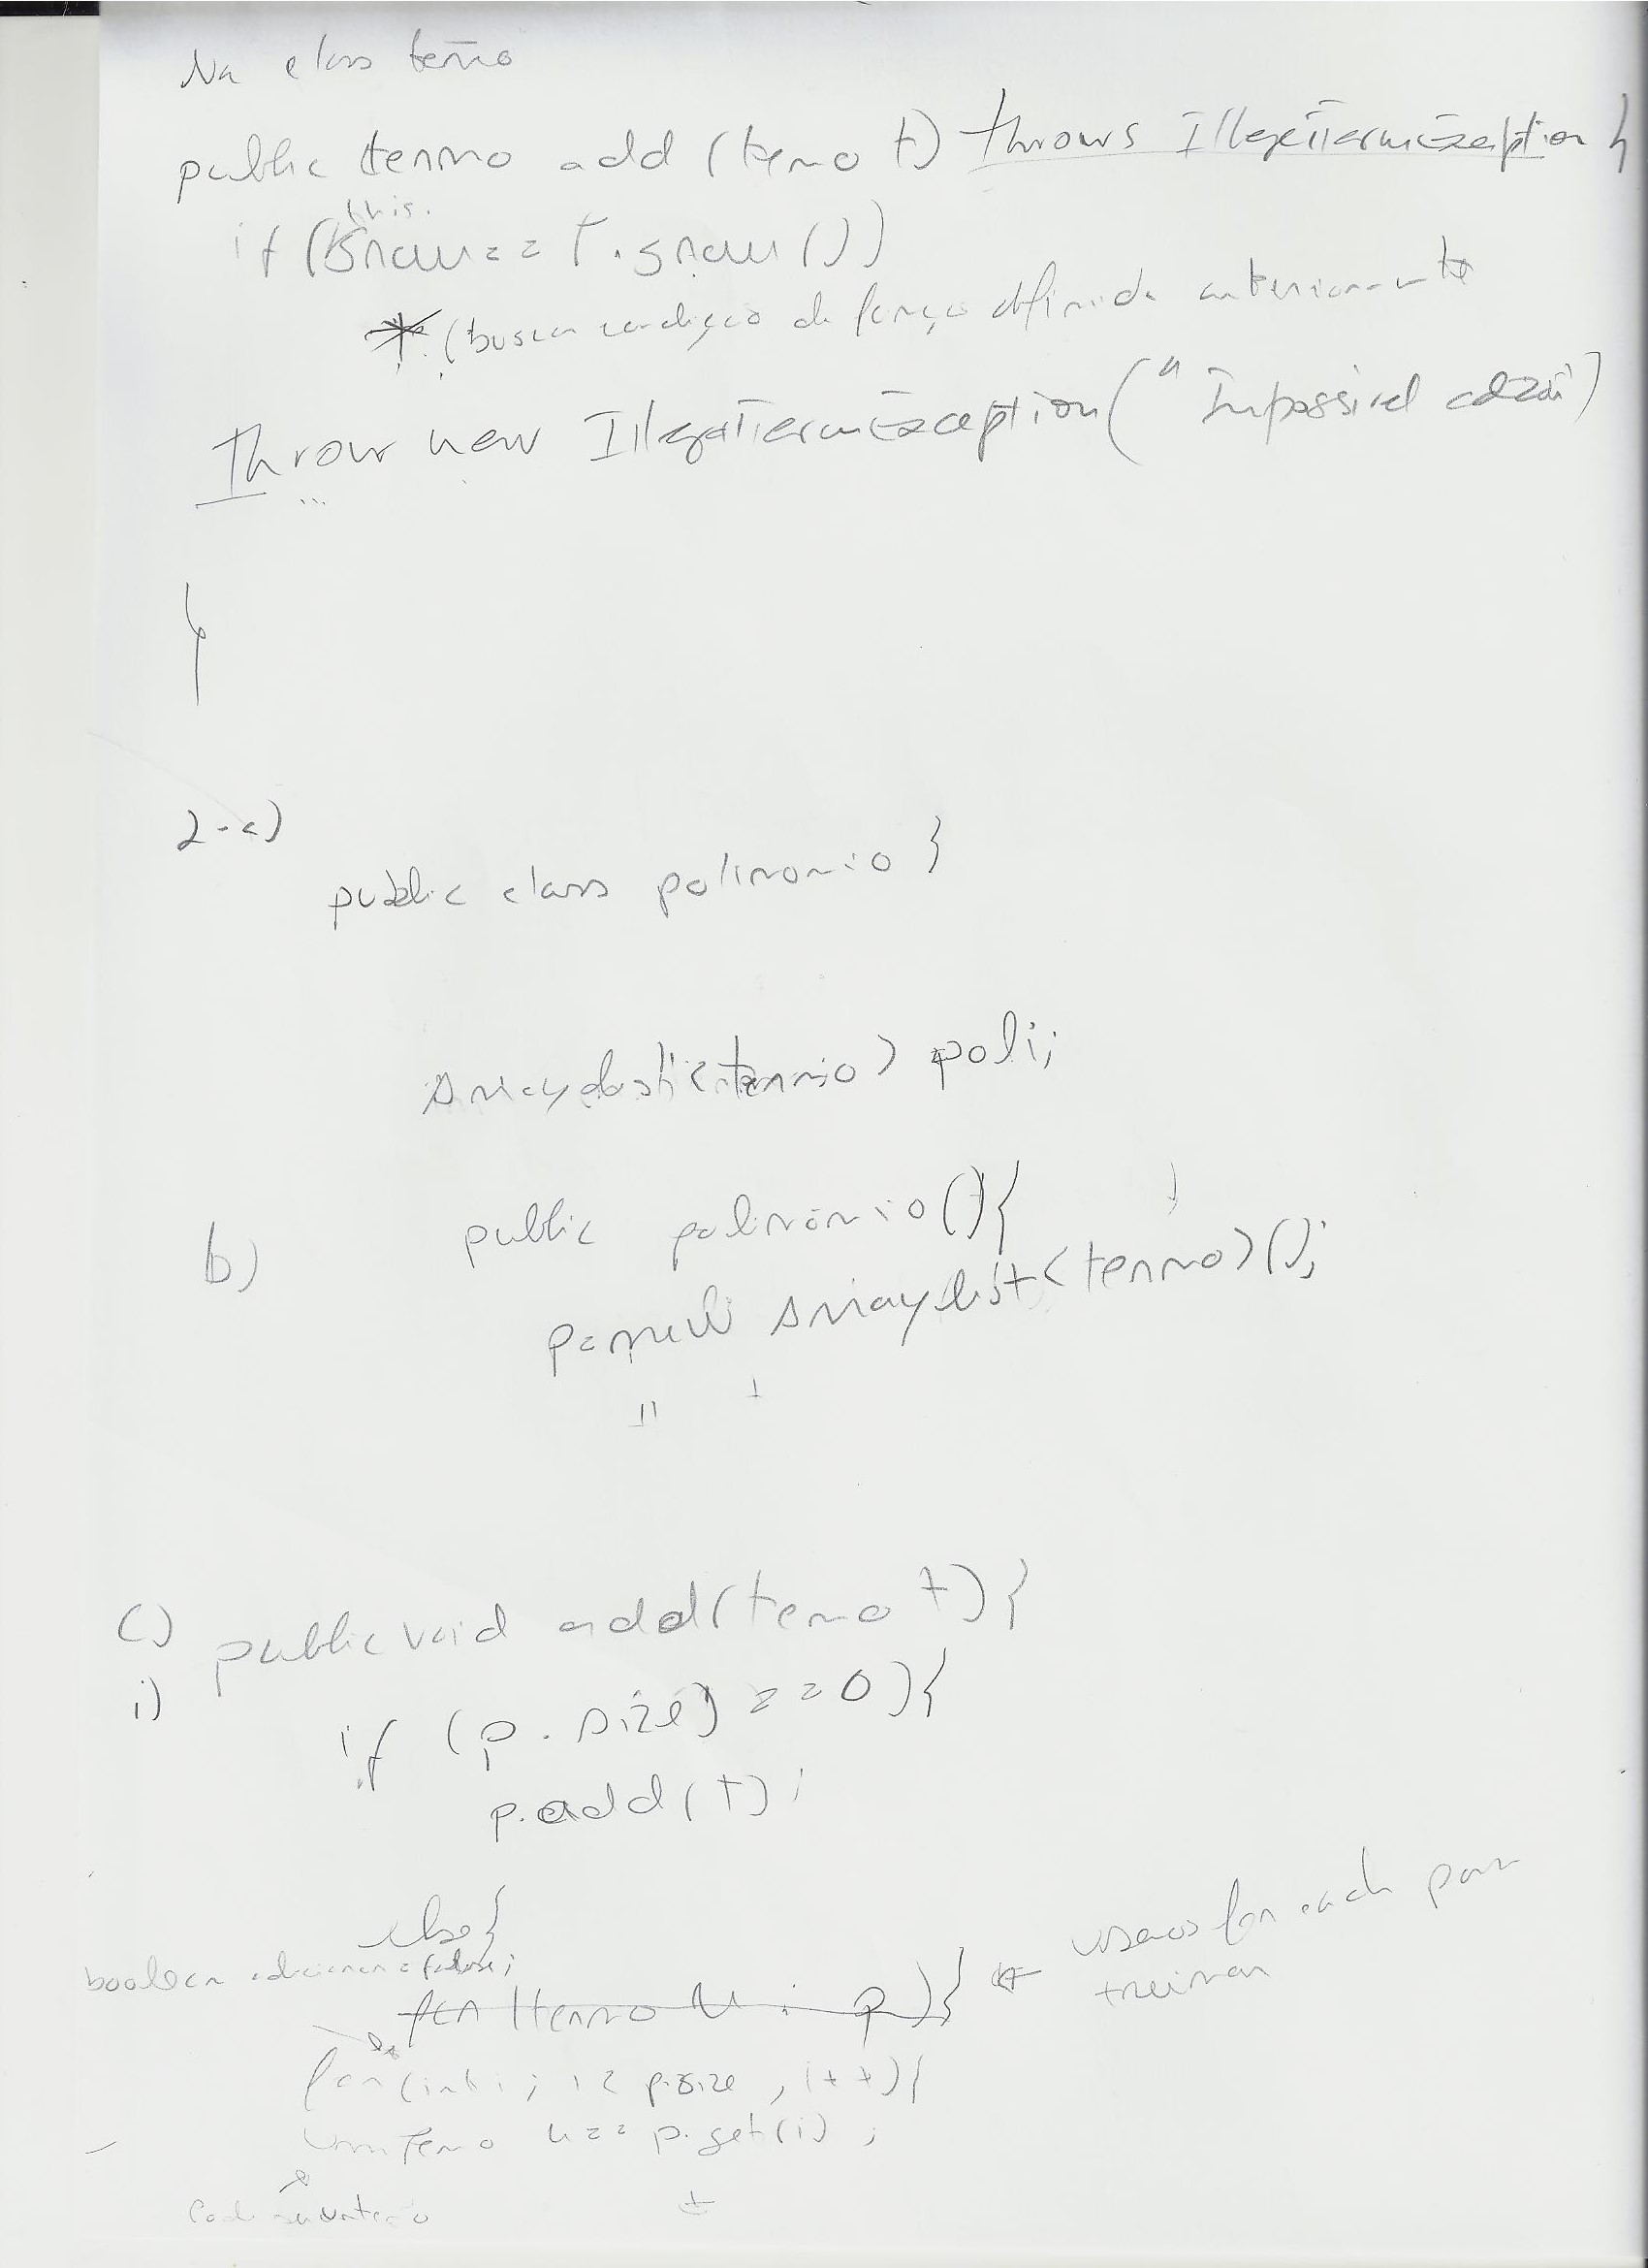 Na class termo
public termo add (termo t) throws IllegalTermException {
this.
if (grau == t.grau ())
* (buscar condição de função definida anteriormente
Throw new IllegalTermException (" Impossivel
...
}
2-a)
public class polinomio }
ArrayList <termo> poli;
b) public polinomio(){
p = new ArrayList<termo>();
c) public void add(termo t){
i)
if (p.size) == 0){
p.add(t);
else{
boolean = false;
for (termo u : p){ usamos for each para
treinar
for(int i; i < p.size, i++){
um termo u == p.get(i);